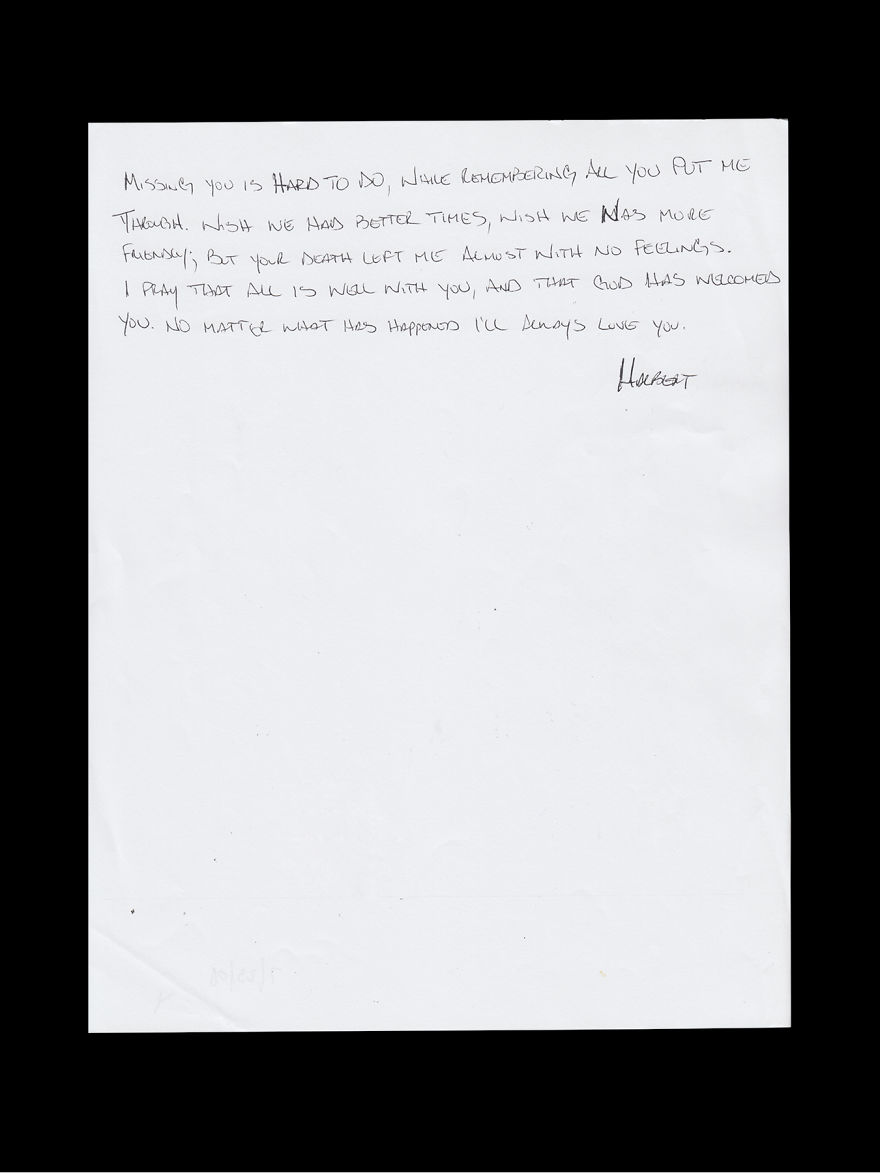 MISSING YOU IS HARD TO DO, WHILE REMEMBERING ALL YOU PUT ME
THROUGH. WISH WE HAD BETTER TIMES, WISH WE WAS MORE
FRIENDLY; BUT YOUR DEATH LEFT ME ALMOST WITH NO FEELINGS.
I PRAY THAT ALL IS WELL WITH YOU, AND THAT GOD HAS WELCOMED
YOU. NO MATTER WHAT HAS HAPPENED I'LL ALWAYS LOVE YOU.
HALBERT